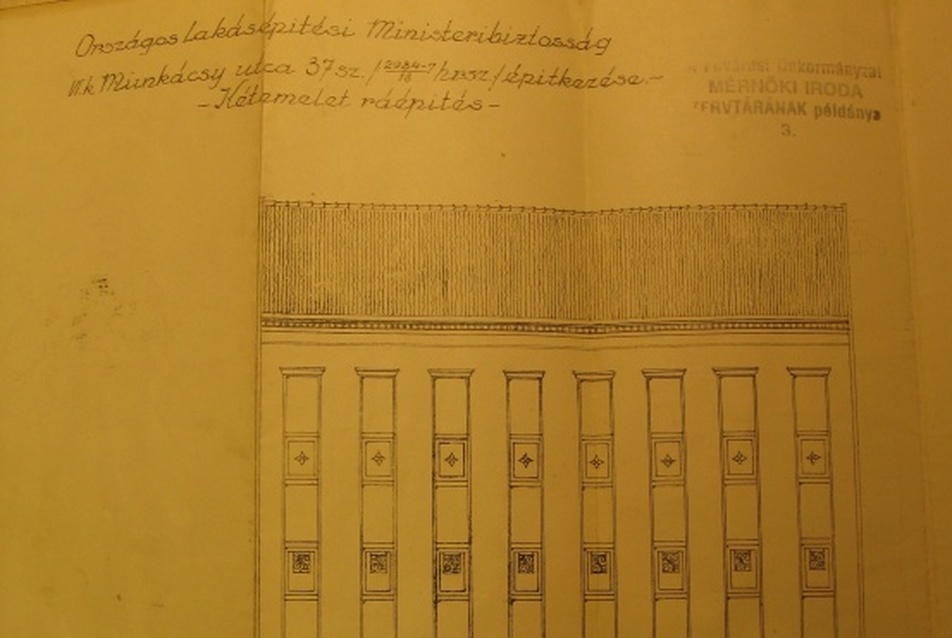 Országos Lakásépitési Ministeribiztosság
VI.k Munkácsy utca 37 sz. / 2984-7/18 hrsz / épitkezése.-
- Kétemelet ráépités -
Fővárosi Önkormányzat
MÉRNÖKI IRODA
TERVTÁRÁNAK példánya
3.